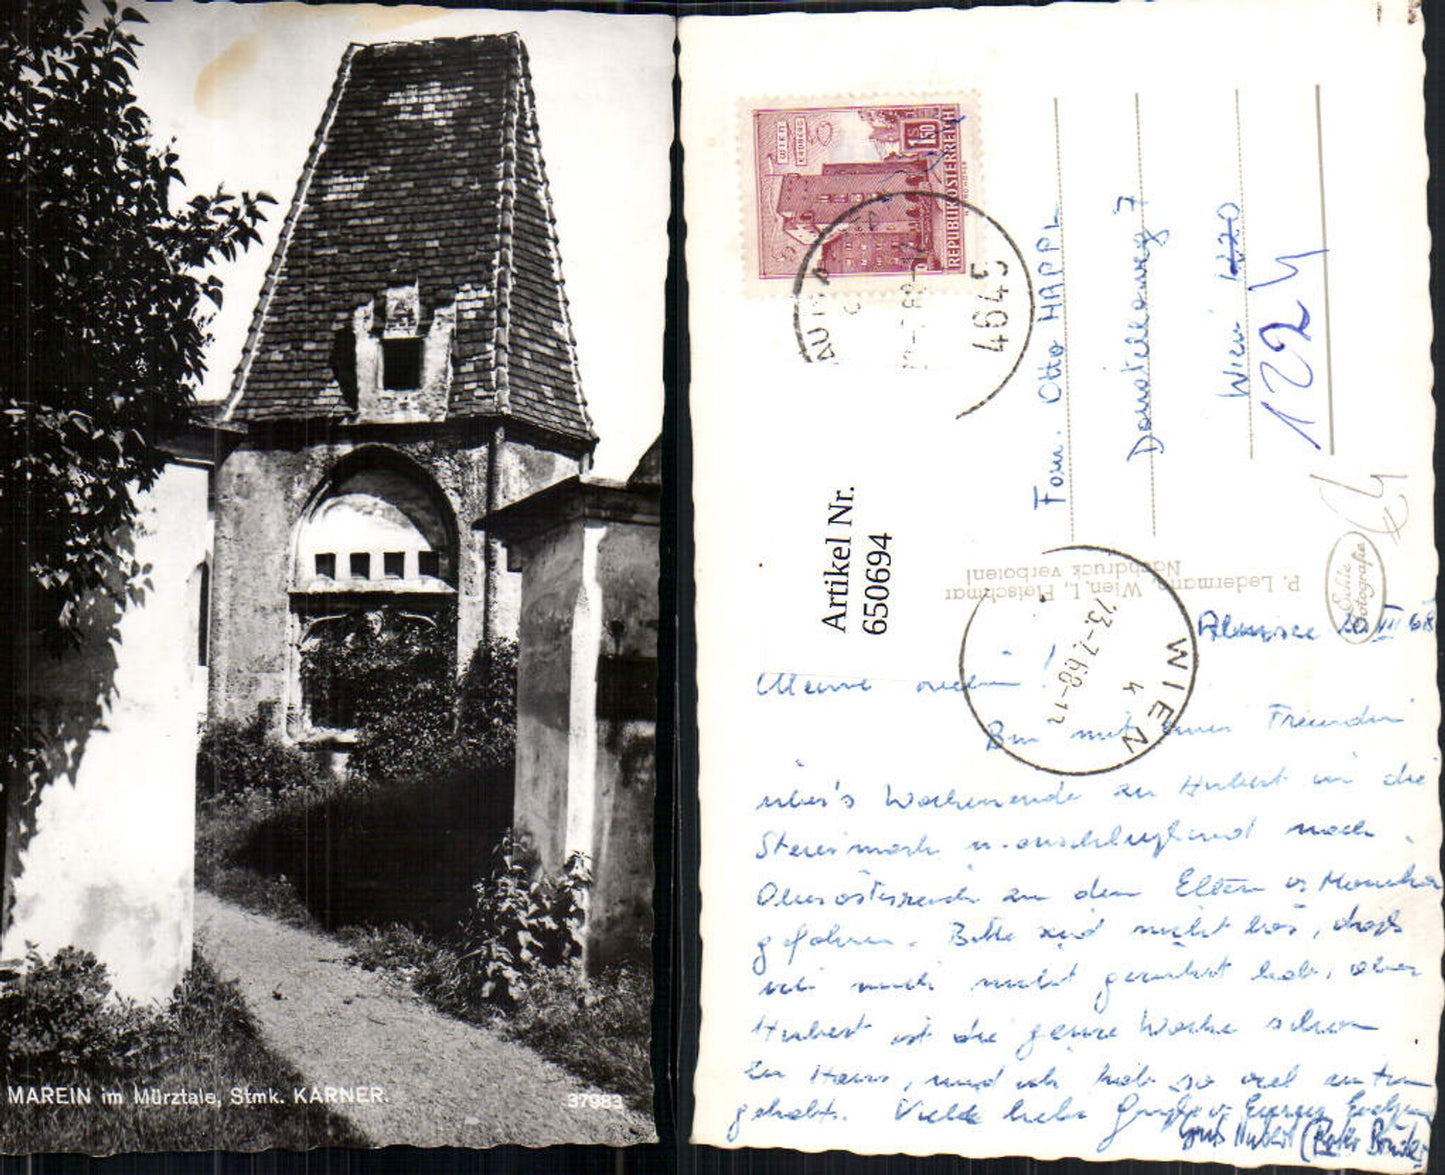 MAREIN im Mürztale, Stmk. KARNER.
37983
WIEN
ERDBERG
S 1.50
REPUBLIK ÖSTERREICH
4645
Artikel Nr.
650694
Fam. Otto HAPPL
7
Wien 1220
1224
P. Ledermann, Wien, I., Fleischmar
Nachdruck verboten!
Echte
Fotografie
WIEN
13.-7.68-12
68
Meine
Bin mit einer Freundin
über's Wochenende zu Hubert in die
Steiermark u. anschließend nach
Oberösterreich zu den Eltern v.
gefahren. Bitte seid nicht bös, daß
ich mich nicht gerührt hab, aber
Hubert ist die ganze Woche schon
zu Haus, und ich hab so viel zu tun
gehabt. Viele liebe
Hubert